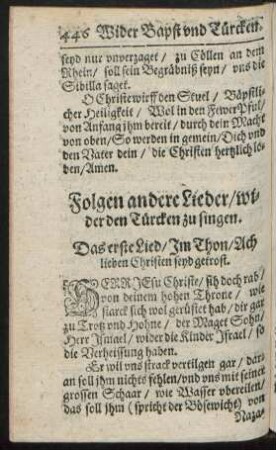 446 Wider Bapst vnd Türcken.
seyd nur vnverzaget / zu Cöllen an dem
Rhein / soll sein Begräbniß seyn / vns die
Sibilla saget.
O Christe wirff den Stuel / Bäpstli-
cher Heiligkeit / Wol in den Fewer Pful /
von Anfang ihm bereit / durch dein Macht
von oben / So werden in gemein / Dich vnd
den Vater dein / die Christen hertzlich lo-
ben / Amen.
Folgen andere Lieder / wi-
der den Türcken zu singen.
Das erste Lied / Im Thon / Ach
lieben Christen seyd getrost.
HERR JEsu Christe / sih doch rad /
von deinem hohen Throne / wie
starck sich wol gerüstet hab / dir gar
zu Trotz vnd Hohne / der Maget Sohn /
Herr Ismael / wider die Kinder Israel / so
die Verheissung haben.
Er wil vns strack vertilgen gar / dar-
an soll ihm nichts fehlen / vnd vns mit seiner
grossen Schaar / wie Wasser vbereilen /
das soll ihm (spricht der Bösewicht) von
Naza-